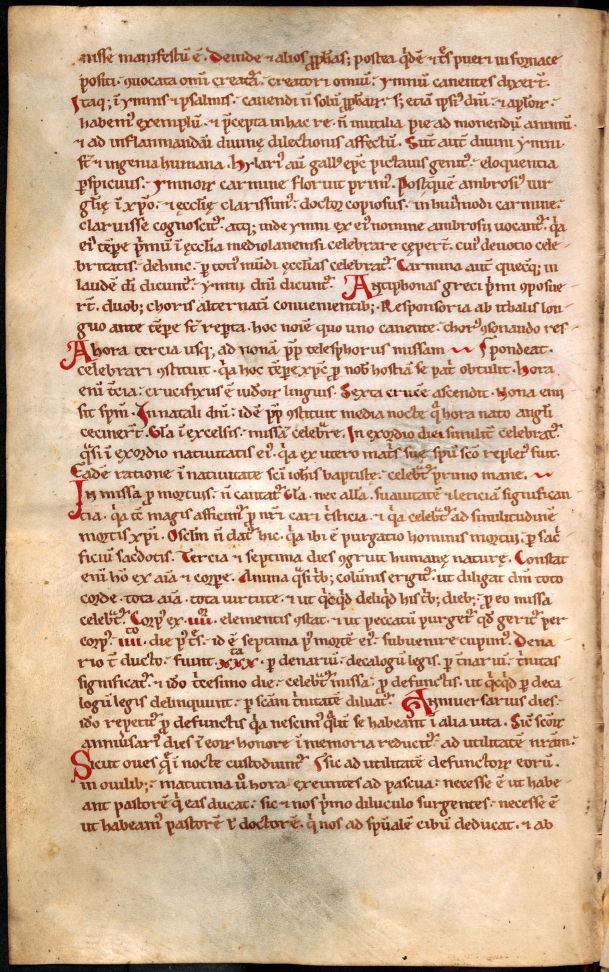 nisse manifestũ ẽ. Deinde ⁊ alios ꝓphas; postea q̇dẽ ⁊ tṡ pueri in fornace
positi. ꝯuocata om̃i creatã. creatori om̃iũ. ymnũ canentes dixer̃t.
Itaq; ĩ ymnis ⁊ psalmis. canendi ñ solũ ꝓphaꝝ. s; etiã ipsiꝰ dñi. ⁊ aploꝝ.
habemꝰ exemplũ. ⁊ p̃cepta in hac re. ñ inutilia pie ad monendũ animũ.
⁊ ad inflammandũ diuinę dilectionis affectũ. Sũt autẽ diuini ymni
st̃ ⁊ ingenia humana. hylariꝰ aũ gallꝰ ep̃c pictauis genitꝰ. eloquentia
ꝑspicuus. ymnoꝝ carmine floruit primꝰ. Postquẽ ambrosiꝰ uir
glię ĩ xp̃o. ⁊ ĩ ęcclię clarissimꝰ. doctor copiosus. in huiꝰmodi carmine.
claruisse cognoscit᷑. atq; inde ymni ex eiꝰ nomine ambrosii uocant᷑. q̇a
eiꝰ tẽpe p̃mũ ĩ ęcclia mediolanensi celebrare cęper̃t. cuiꝰ deuotio cele-
britatis. dehinc. ꝑ totiꝰ mũdi ęcclias celebrat᷑. Carmina aũt quecq; in
laudẽ dĩ dicunt᷑. ymni dñi dicunt᷑. Antiphonas greci p̃mi ꝯposue
rt̃. duob; choris alternatĩ conuenientib;. Responsoria ab italis lon
guo ante tẽpe st̃ repta. hoc noĩe quo uno canente. chorꝰ ꝯsonando res
Ahora tercia usq; ad nonã. pp̃ telesphorus missam spondeat.
celebrari ꝯstituit. q̇a hoc tẽpe xp̃c ꝓ nob̃ hostiã se pat̃ obtulit. Hora
enĩ t̃cia. crucifixus ẽ iudoꝝ linguis. Sexta crucẽ ascendit. Nona emi
sit sp̃m. In natali dñi. idẽ pp̃ ꝯstituit media nocte q̇ hora nato angli
cecinert̃. Gl̃a ĩ excelsis. missã celeb̃re. In exordio diei similit̃ celebrat᷑.
q̇si ĩ exordio natiuitatis eiꝰ. q̇a ex utero mat̃s suę sp̃u sc̃o repletꝰ fuit.
Eadẽ ratione ĩ natiuitate sc̃i ioh̃is baptistę. celeb̃t᷑ primo mane.
In missa ꝓ mortuis. ñ cantat᷑ gl̃a. nec all̃a. suauitatẽ ⁊ leticiã significan
tia. q̇a tẽ magis afficim᷑ ꝓ nr̃i cari t̃sticia. ⁊ q̇a celeb̃t᷑ ad similitudinẽ
mortis xp̃i. Osclm̃ ñ dat᷑ hic. q̇a ibi ẽ purgatio hominis mortui. ꝑ sac̃
ficiũ sac̃dotis. Tercia ⁊ septima dies ꝯgruit humanę naturę. Constat
enĩ hõ ex aĩa ⁊ corpe. Anima q̇si t̃b; colũnis erigit᷑. ut diligat dñm toto
corde. tota aĩa. tota uirtute. ⁊ ut q̇cq̇d deliq̇d his t̃b; dieb;. ꝑ eo missa
celeb̃t᷑. Corpꝰ ex .iiii. elementis ꝯstat. ⁊ ut peccatũ purget᷑ qd̃ gerit᷑ per
corpꝰ. iiii. die pꝰ t̃s. id ẽ septima pꝰ mortẽ eiꝰ. subuenire cupimꝰ. Dena
rio t̃ ducto. fiunt .xxx. ꝑ denariũ. decalogũ legis. ꝑ t̃nariũ. t̃nitas
significat᷑. ⁊ ido t̃cesimo die. celeb̃t᷑ missa. ꝓ defunctis. ut q̇cq̇d ꝑ deca
logũ legis delinquunt. ꝑ sc̃am t̃nitatẽ diluat᷑. Anniuersarius dies.
ido repetit᷑ ꝓ defunctis q̇a nescimꝰ q̇lit̃ se habeant ĩ alia uita. Sic̃ sc̃oꝝ
anniũsariꝰ dies ĩ eoꝝ honore ĩ memoria reducit᷑. ad utilitatẽ nr̃am:
Sicut oues q̇ ĩ nocte custodiunt᷑ sic ad utilitatẽ defunctoꝝ eorũ.
in ouilib;. matutina ũ hora exeuntes ad pascua. necesse ẽ ut habe
ant pastorẽ q̇ eas ducat. sic ⁊ nos p̃mo diluculo surgentes. necesse ẽ
ut habeamꝰ pastorẽ ł doctorẽ. q̇ nos ad sp̃ualẽ cibũ deducat. ⁊ ab